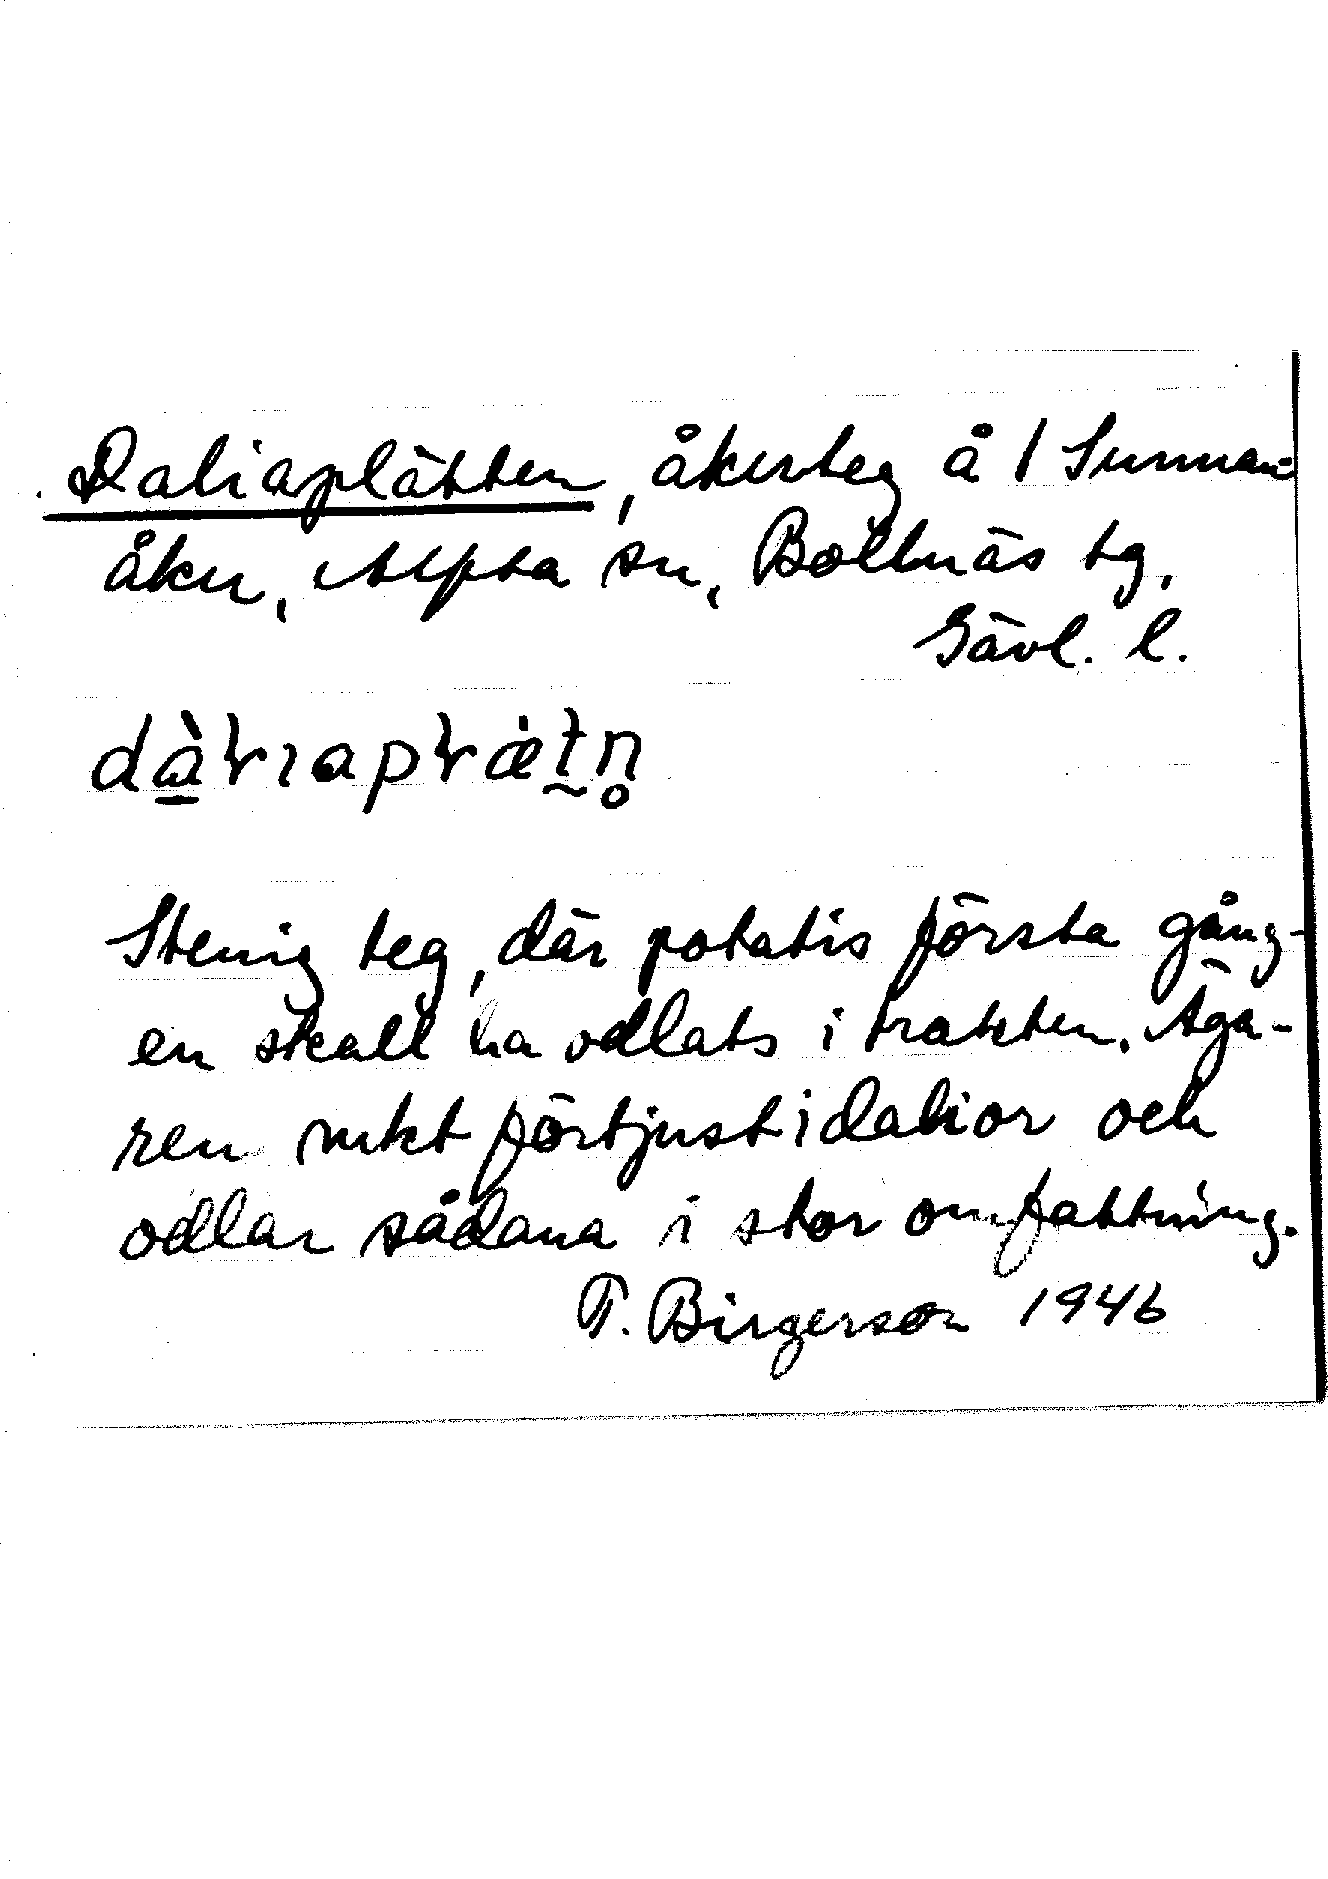 Daliaplätten, åkerteg å 1 Sunnan-
åker, Alfta sn, Bollnäs tg,
Gävl. l.
Stenig teg, där potatis första gång-
en skall ha odlats i trakten. Äga-
ren mkt förtjust i dalior och
odlar sådana i stor omfattning.
T. Birgerson 1946